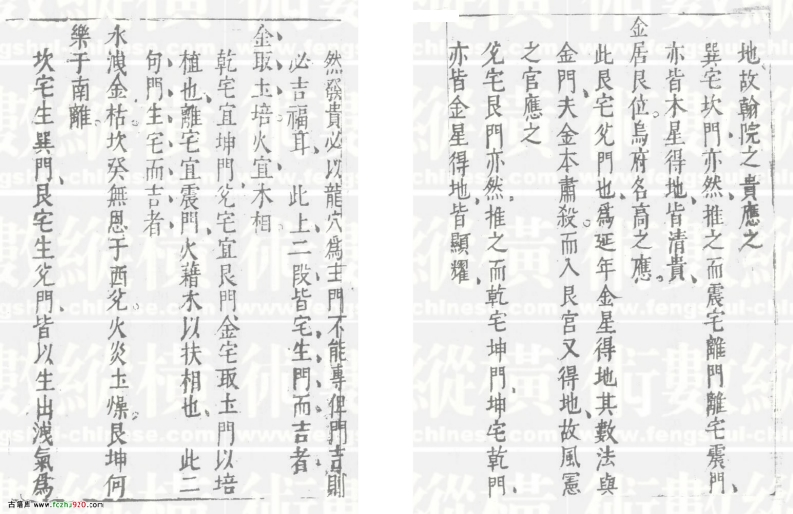 地、故翰院之貴應之
巽宅坎門亦然、推之而震宅離門離宅震門、
亦皆木星得地、皆清貴、
金居艮位烏府名高之應。
此艮宅兌門也、為延年金星得地其數法與
金門、夫金本肅殺而入艮宮又得地、故風憲
之官應之
兌宅艮門亦然。推之而乾宅坤門、坤宅乾門、
亦皆金星得地、皆顯耀、
然發貴必以龍穴爲主門不能專俾門吉則
必吉福耳、此上二段皆宅生門而吉者
金取土培火宜木相。
乾宅宜坤門、兌宅宜艮門金宅取土門以培
植也、離宅宜震門、火藉木以扶相也、此二
句門生宅而吉者
水洩金枯坎癸無恩于西兌。火炎土燥。艮坤何
樂于南離。
坎宅生巽門、艮宅生兌門、皆以生出洩氣為
古籍库 www.fczhj920.com